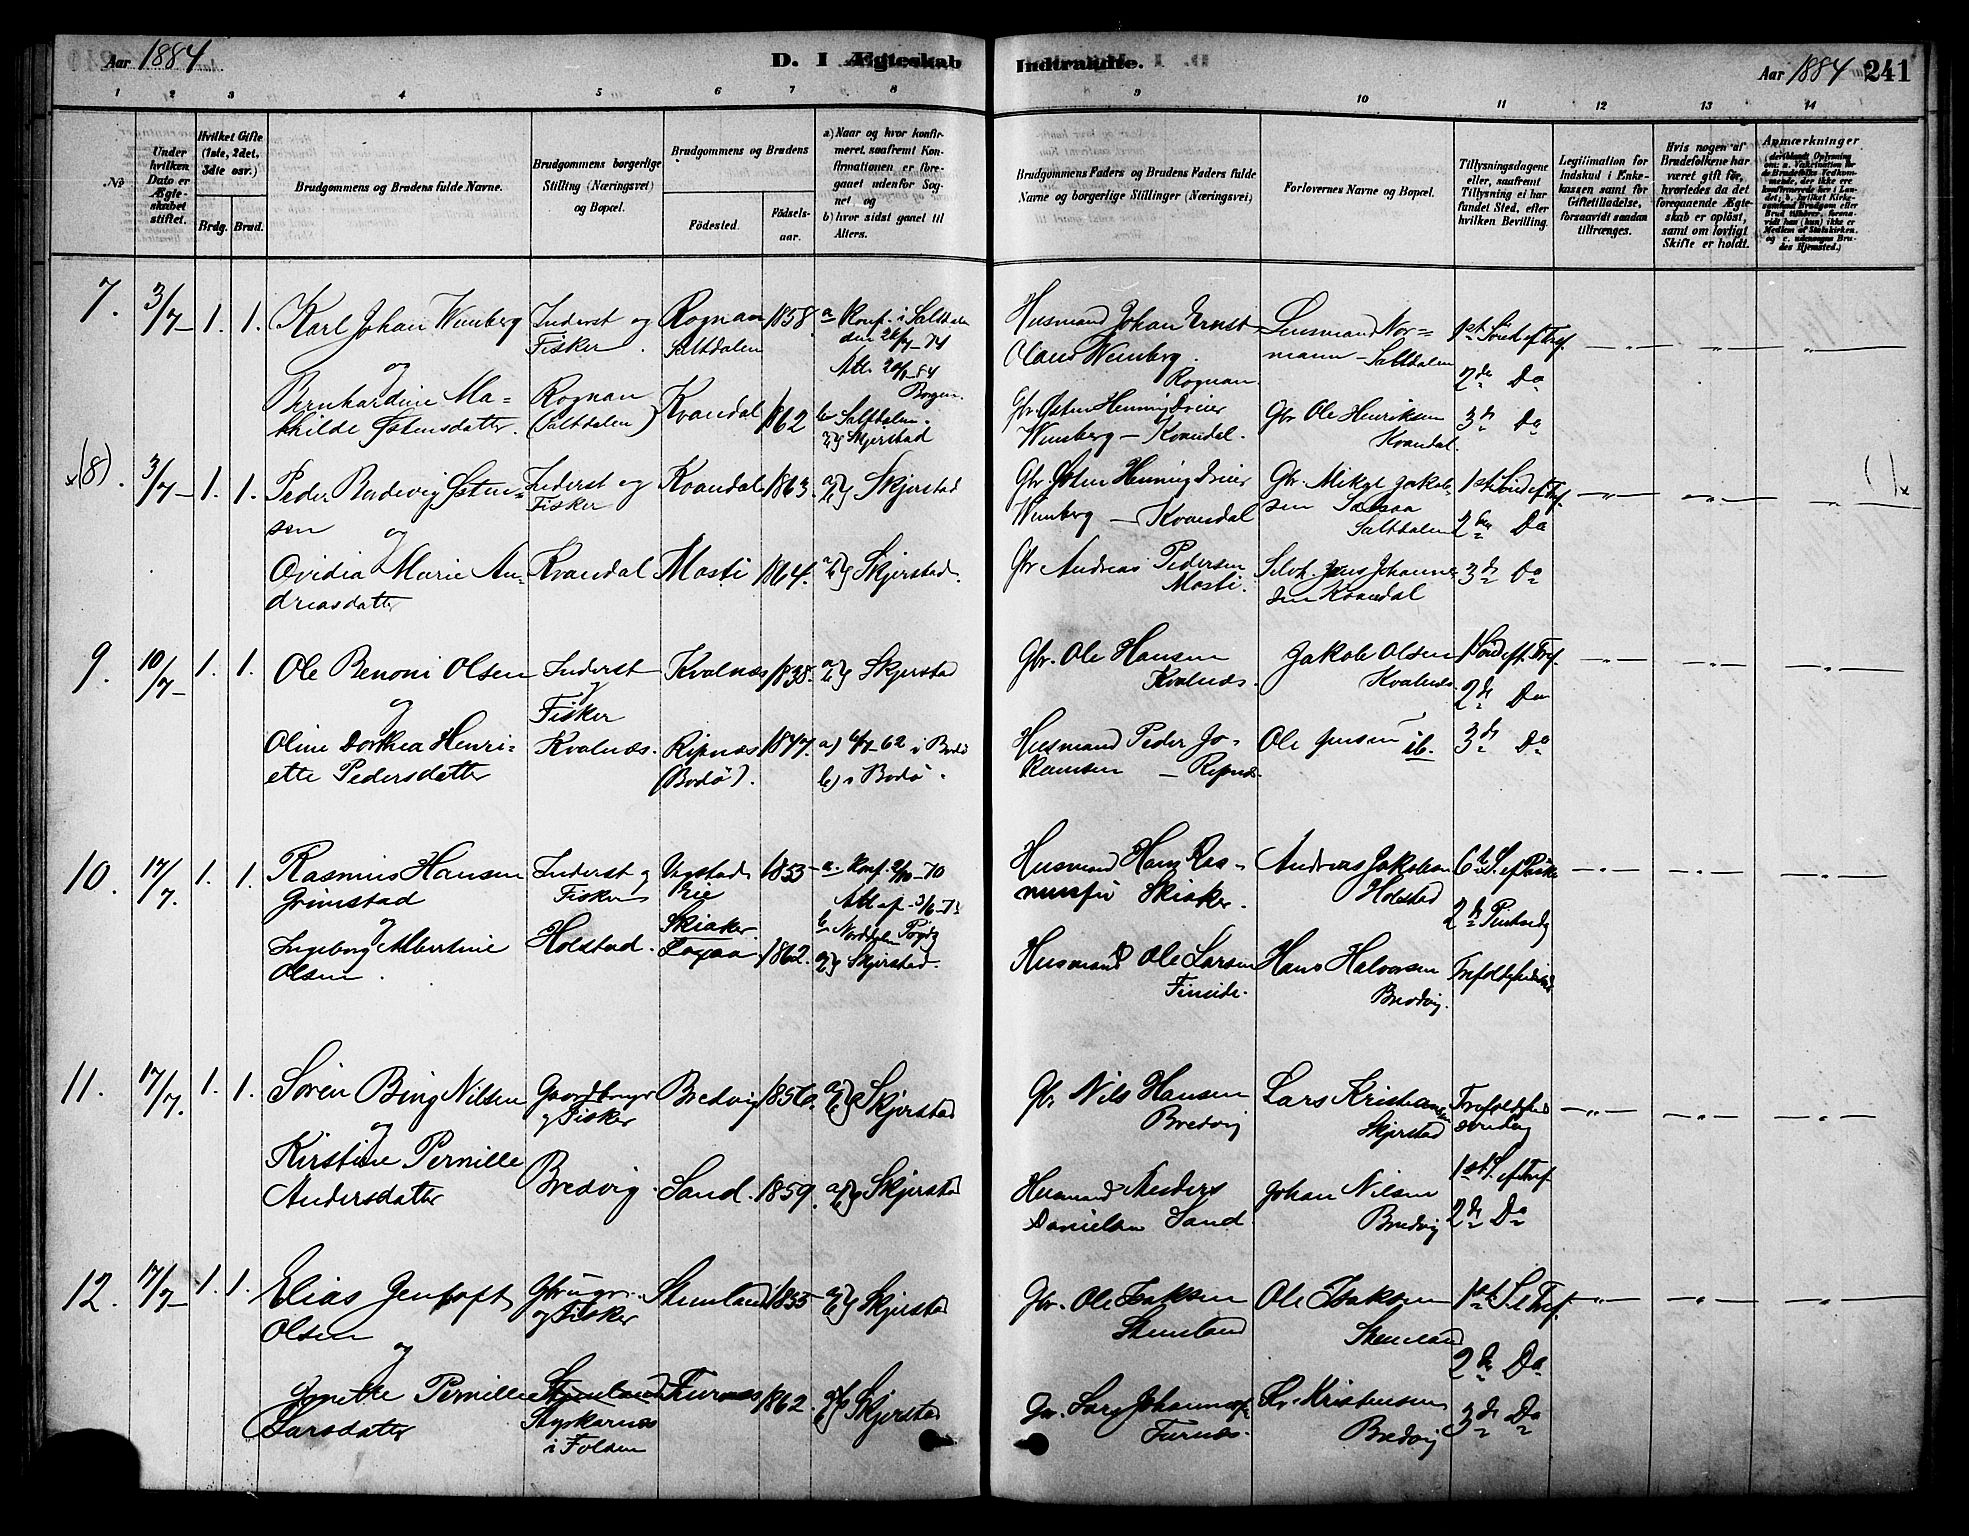 Aar 1884
D. I Ægteskab Indtraadte.
Aar 1884 241
1 2 3 4 5 6 7 8 9 10 11 12 13 14
No
Under hvilken Dato er Ægteskabet stiftet.
Hvilket Gifte (1ste, 2det, 3die osv.)
Brdg. Brud.
Brudgommens og Brudens fulde Navne.
Brudgommens borgerlige Stilling (Næringsvei) og Bopæl.
Brudgommens og Brudens
Födested. Födsels-aar.
a) Naar og hvor konfirmeret, saafremt Konfirmationen er foregaaet udenfor Sognet og b) hvor sidst gaaet til Alters.
Brudgommens Faders og Brudens Faders fulde Navne og borgerlige Stillinger (Næringsvei)
Forlovernes Navne og Bopæl.
Tillysningsdagene eller, saafremt Tillysning ei har fundet Sted, efter hvilken Bevilling.
Legitimation for Indskud i Enkekassen samt for Giftetilladelse, forsaavidt saadan tiltrænges.
Hvis nogen af Brudefolkene har været gift før, hvorledes da det foregaaende Ægteskab er oplöst, samt om lovligt Skifte er holdt.
Anmærkninger
7. 3/7 1. 1. Karl Johan Wenberg
og
Bernhardine Ma=
thilde Østensdatter.
Inderst og
Fisker.
Rognan
(Saltdalen)
Rognan
Saltdalen
1858.
Kvandal 1862
a Konf. i Saltdalen
Borgen.
b Saltdalen.
Skjerstad
Husmand Johan Ernst
Olaus Wenberg.
Rognan
Gbr. Østen Henning Dreier
Wenberg — Kvandal.
Lensmand Nor=
mann — Saltdalen
Gbr Ole Henriksen
Kvandal.
1st Sönd. ef Tref.
2de Do
3de Do
(8). 3/7 1. 1. Peder Bodevig Østen=
sen
og
Ovidia Marie An=
dreasdatter
Inderst og
Fisker
Kvandal
Kvandal 1863.
Mosti 1864.
a b} Skjerstad
a b} Skjerstad.
Gbr Østen Henning Dreier
Wenberg — Kvandal
Gbr Andreas Pedersen
Mosti.
Gbr. Mikal Jakob=
sen
Saltdalen
Selvh. Jens Johanne=
sen Kvandal
1st Sönd ef Tref.
2den Do
3de Do
9. 10/7 1. 1. Ole Benoni Olsen
og
Oline Dorthea Henri=
ette Pedersdatter
Inderst
og
Fisker
Kvalnæs.
Kvalnæs 1838.
Ripnæs 1847.
(Bodø).
a b} Skjerstad
a) 6/7-62 i Bodø
b) i Bodø.
Gbr. Ole Hansen
Kvalnæs.
Husmand Peder Jo=
hansen — Ripnæs.
Jakob Olsen
Kvalnæs
Ole Jensen ib.
1 Sönd eft. Tref.
2de Do
3de Do
10. 17/7. 1. 1. Rasmus Hansen
Grimstad
og
Ingeborg Albertine
Olsen.
Inderst og
Fisker
Holstad.
Skiaker.
1853
1862.
a. Konf. 2/10-70
a b} Skjerstad.
Husmand Hans Ras=
mussen Skiaker.
Husmand Ole Larsen
Fineide.
Andreas Jakobsen
Holstad
Hans Halvorsen
Bredvig.
6te S. ef Paaske
2d Pintsedg
11. 17/7. 1. 1. Sören Bing Nilsen
og
Kirstine Pernille
Andersdatter
Gaardbruger
og Fisker
Bredvig.
Bredvig 1856.
Sand. 1859.
a b} Skjerstad
a b} Skjerstad
Gbr Nils Hansen
Bredvig
Husmand Anders
Danielsen Sand.
Lars Kristiansen
Skjerstad
Johan Nilsen
Bredvig
Trefoldighed
söndag
1st S. ef Tref.
2de Do
12. 17/7 1. 1. Elias Jentoft
Olsen
og
Pernille
Larsdatter
Gbruger
og Fisker
i Folden
Stemland 1855
Furnæs 1862.
a b} Skjerstad
a b} Skjerstad
Gbr. Ole Isaksen
Stemland
Gbr. Lars Johannes
Furnæs.
Ole Isaksen
Stemland
Kristensen
Bredvig
1st S. e Tref.
2de Do
3de Do